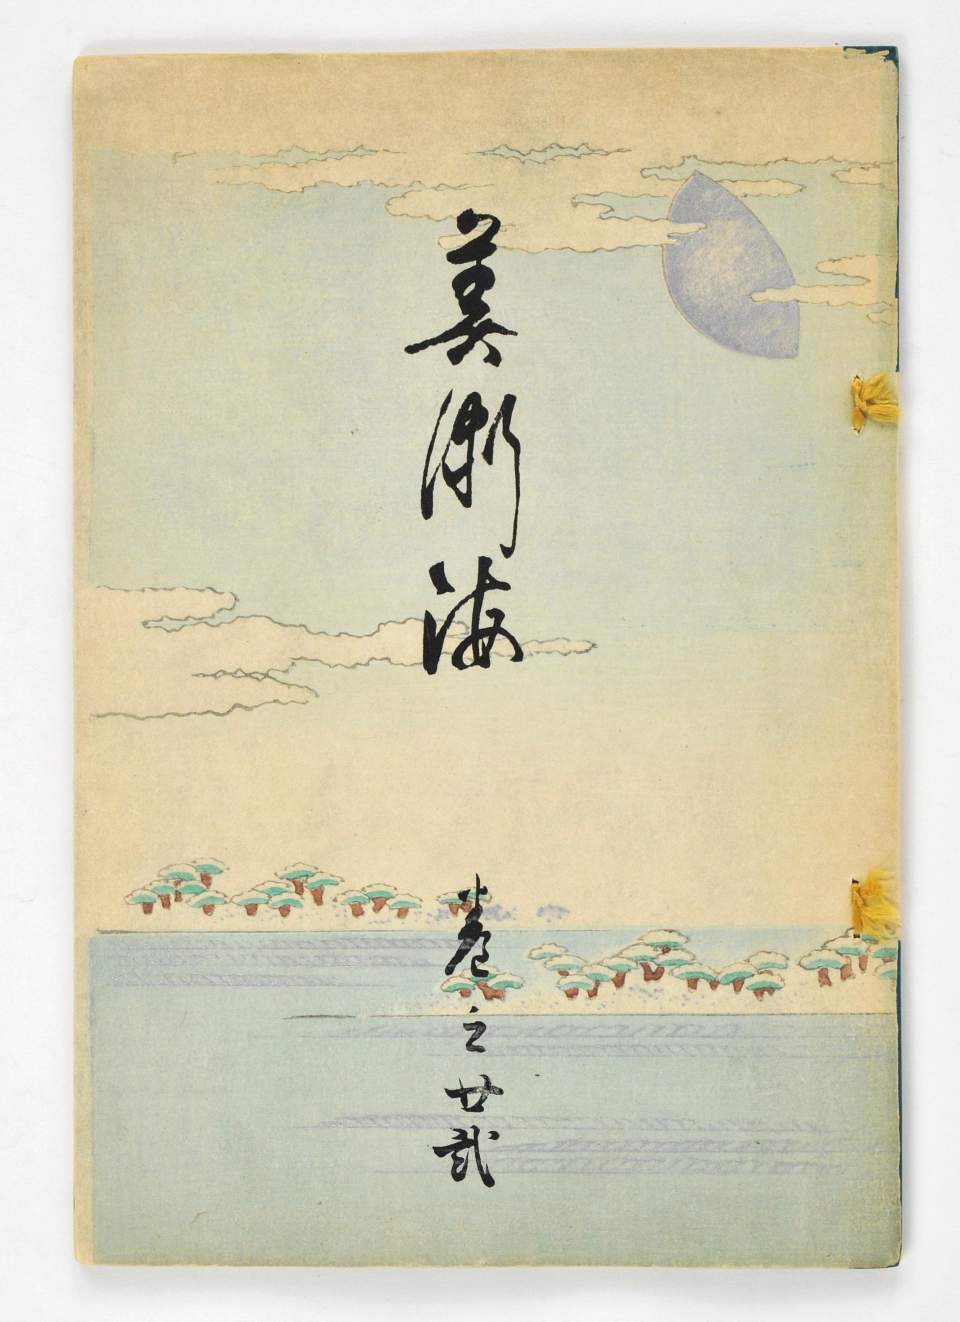 美術海
巻之廿弐